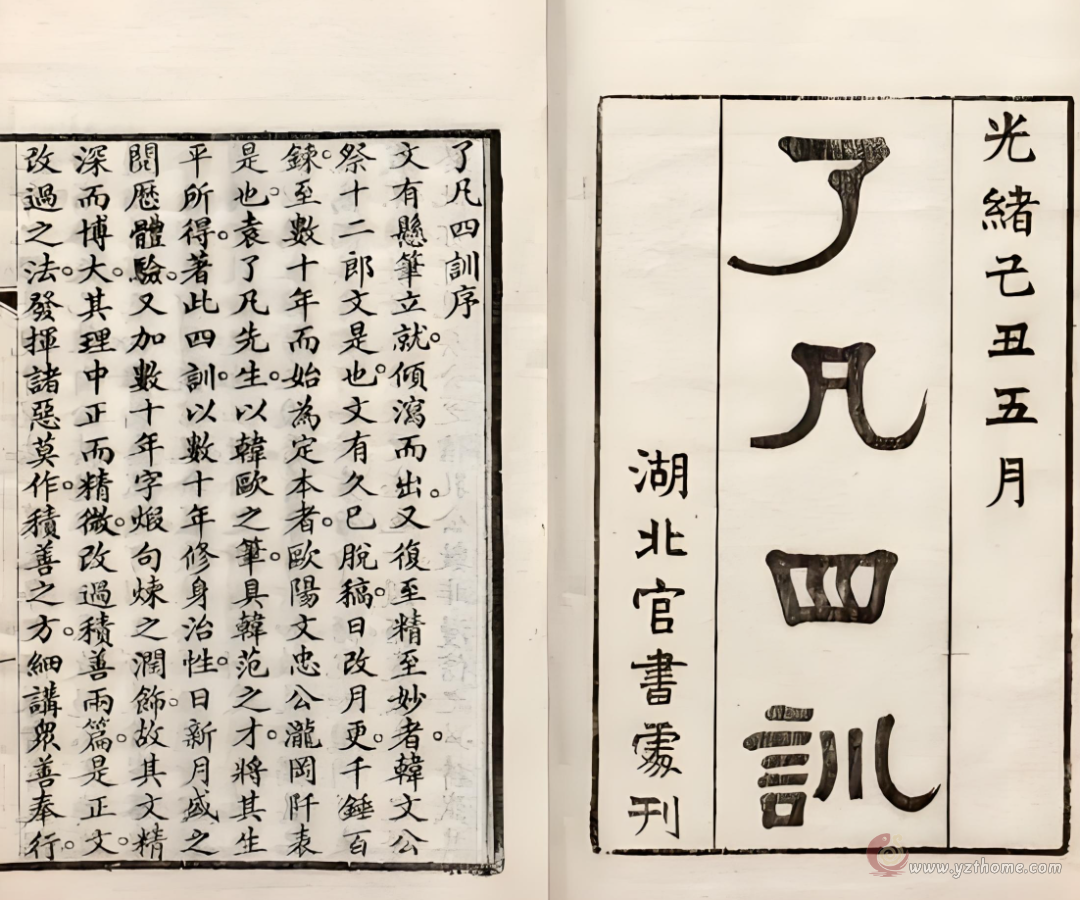 光緒己丑五月
了凡四訓
湖北官書處刊
了凡四訓序
文有懸筆立就。傾瀉而出。又復至精至妙者。韓文公
祭十二郎文是也。文有久已脫稿。日改月更。千錘百
鍊。至數十年而始為定本者。歐陽文忠公瀧岡阡表
是也。袁了凡先生。以韓歐之筆。具韓范之才。將其生
平所得。著此四訓。以數十年修身治性。日新月盛之
閱歷體驗。又加數十年字煅句煉之潤飾。故其文精
深而博大。其理中正而精微。改過積善兩篇。是正文。
改過之法。發揮諸惡莫作。積善之方。細講眾善奉行。
www.yzthome.com